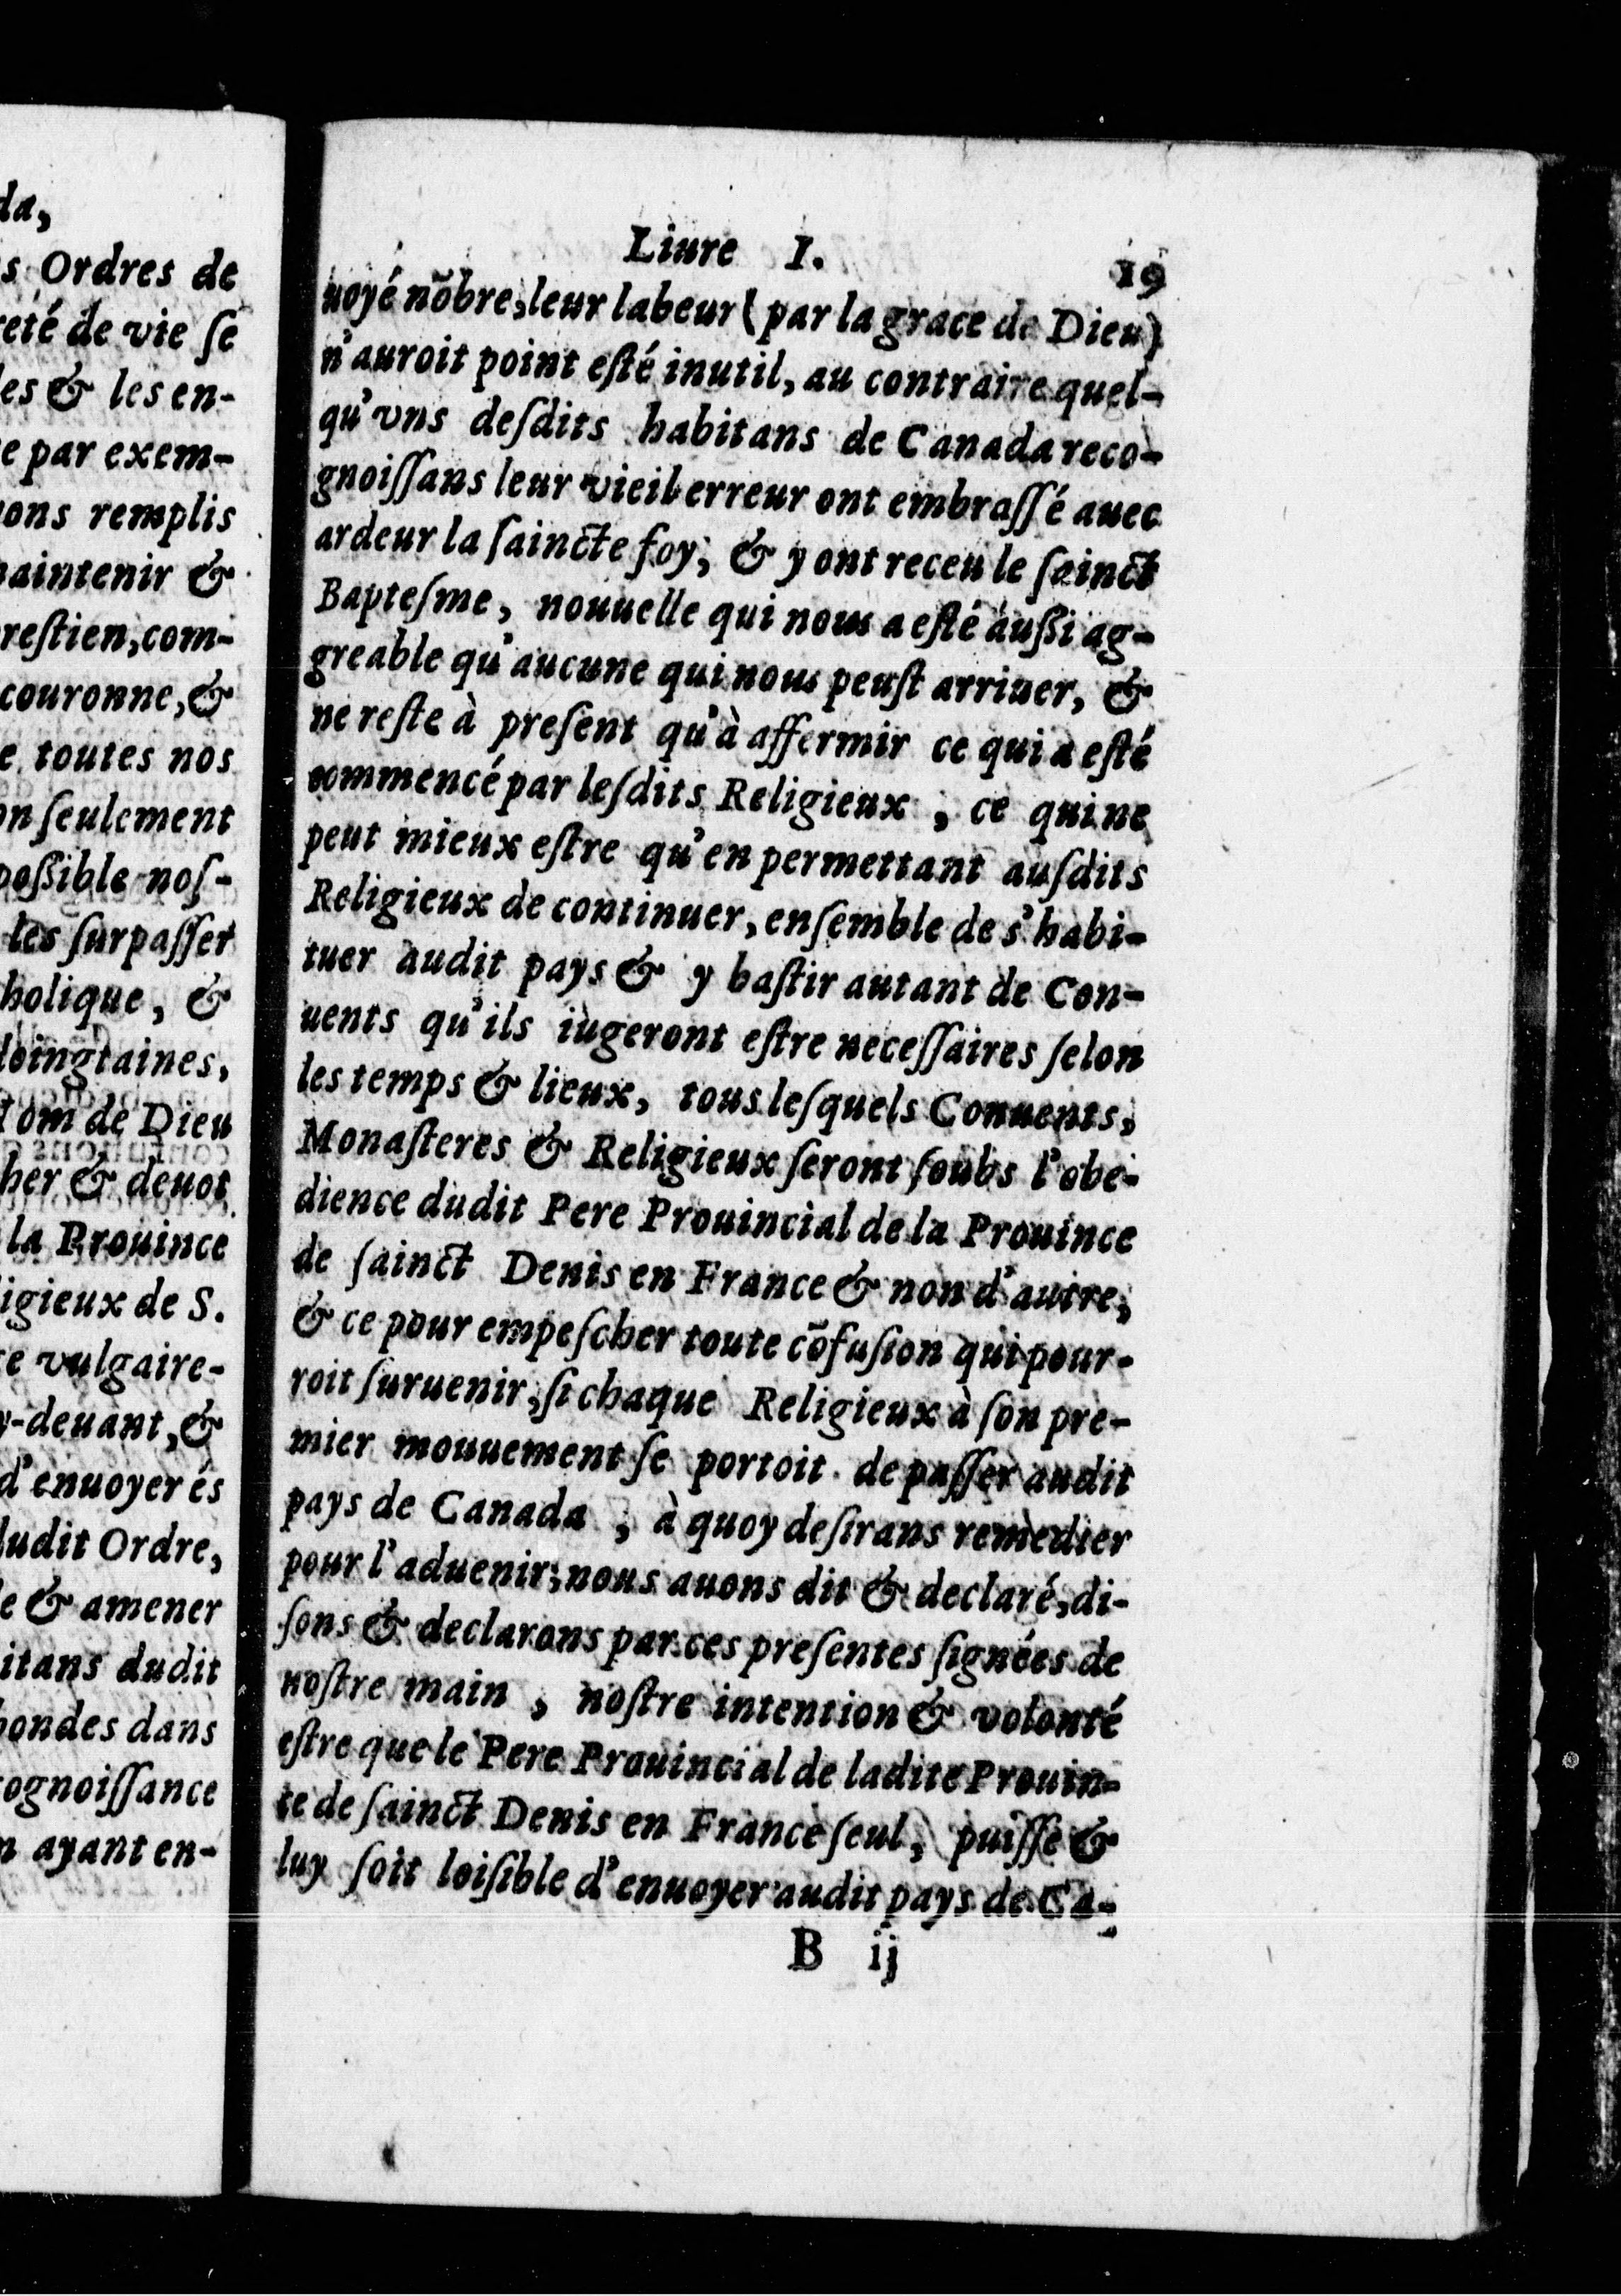 da,
s Ordres de
reté de vie ſe
les & les en-
e par exem-
ons remplis
aintenir &
reſtien, com-
couronne, &
e toutes nos
on ſeulement
poßible noſ-
les ſurpaſſer
holique, &
loingtaines,
om de Dieu
her & deuot
la Prouince
igieux de S.
e vulgaire-
y-deuant, &
d'enuoyer és
dudit Ordre,
e & amener
itans dudit
ondes dans
ognoiſſance
n ayant en-
Liure I. 19
uoyé nõbre, leur labeur (par la grace de Dieu)
n'auroit point eſté inutil, au contraire quel-
qu'vns deſdits habitans de Canada reco-
gnoiſſans leur vieil erreur ont embraſſé auec
ardeur la ſaincte foy, & y ont receu le ſainct
Bapteſme, nouuelle qui nous a eſté außi ag-
greable qu'aucune qui nous peuſt arriuer, &
ne reſte à preſent qu'à affermir ce qui a eſté
commencé par leſdits Religieux, ce qui ne
peut mieux eſtre qu'en permettant auſdits
Religieux de continuer, enſemble de s'habi-
tuer audit pays & y baſtir autant de Con-
uents qu'ils iugeront eſtre neceſſaires ſelon
les temps & lieux, tous leſquels Conuents,
Monaſteres & Religieux ſeront ſoubs l'obe-
dience dudit Pere Prouincial de la Prouince
de ſainct Denis en France & non d'autre,
& ce pour empeſcher toute cõfuſion qui pour-
roit ſuruenir, ſi chaque Religieux à ſon pre-
mier mouuement ſe portoit de paſſer audit
pays de Canada, à quoy deſirans remedier
pour l'aduenir, nous auons dit & declaré, di-
ſons & declarons par ces preſentes ſignées de
noſtre main, noſtre intention & volonté
eſtre que le Pere Prouincial de ladite Prouin-
ce de ſainct Denis en France ſeul, puiſſe &
luy ſoit loiſible d'enuoyer audit pays de Ca-
B ij